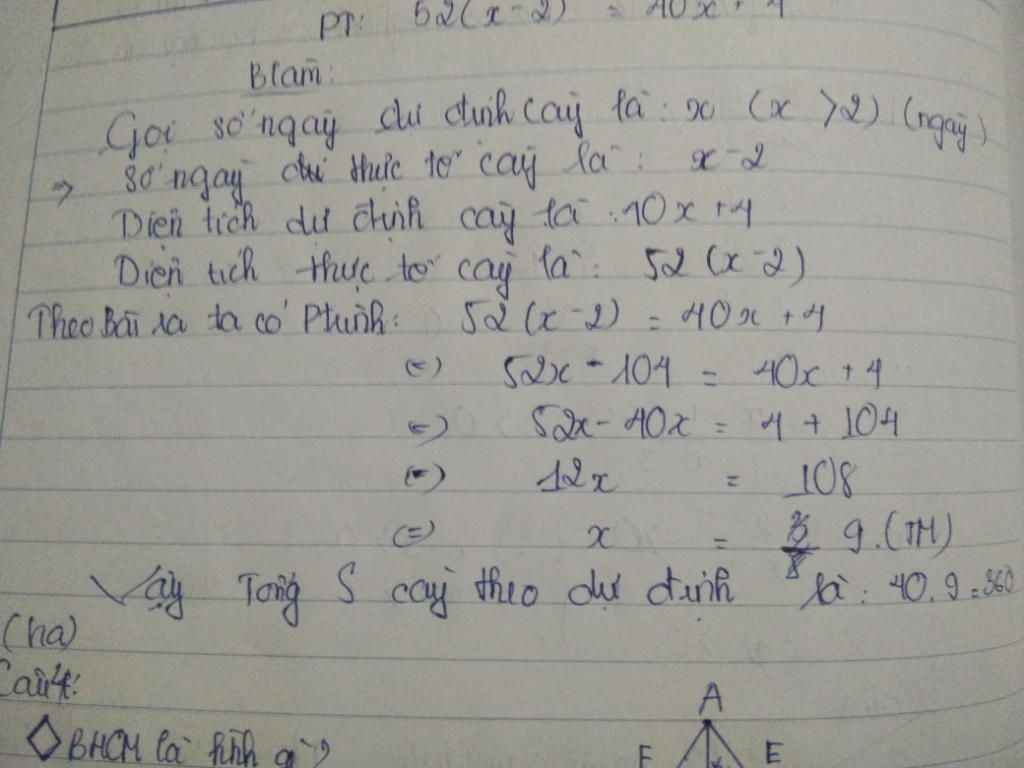 PT: 52(x-2) = 40x + 4
Blàm:
Gọi số ngày dự định cày là: x (x >2) (ngày)
=> số ngày thực tế cày là: x-2
Diện tích dự định cày là: 40x + 4
Diện tích thực tế cày là: 52 (x-2)
Theo Bài ra ta có Ptrình: 52 (x-2) = 40x + 4
(=) 52x - 104 = 40x + 4
(=) 52x - 40x = 4 + 104
(=) 12x = 108
(=) x = 9. (TM)
Vậy Tổng S cày theo dự định là: 40.9=360
(ha)
Câu 4:
◇BHCM là hình gì?
A
F E